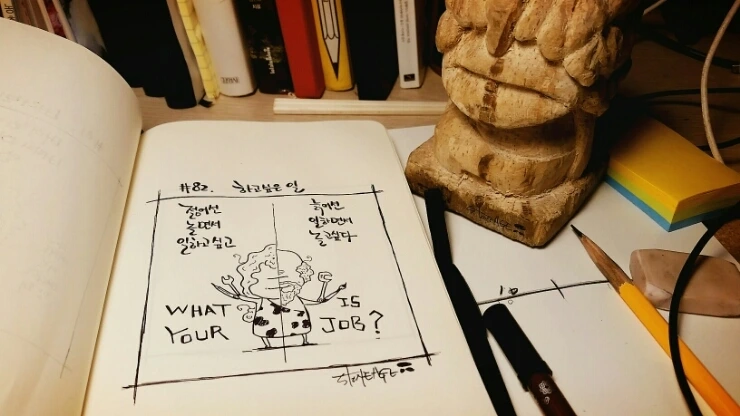 #82. 하고싶은 일
젊어선
놀면서
일하고 싶고
늙어선
일하면서
놀고싶다
WHAT IS
YOUR JOB?